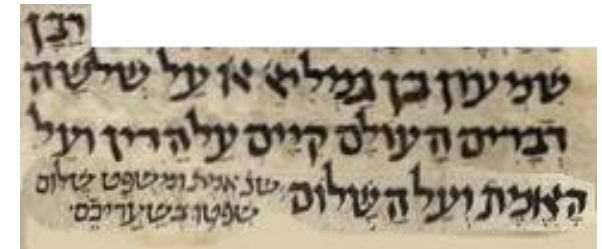 רבן
שמעון בן גמליא או׳ על שלשה
דברים העולם קיים על הדין ועל
האמת ועל השלום שנ׳ אמת ומשפט שלום
שפטו בשעריכם׃